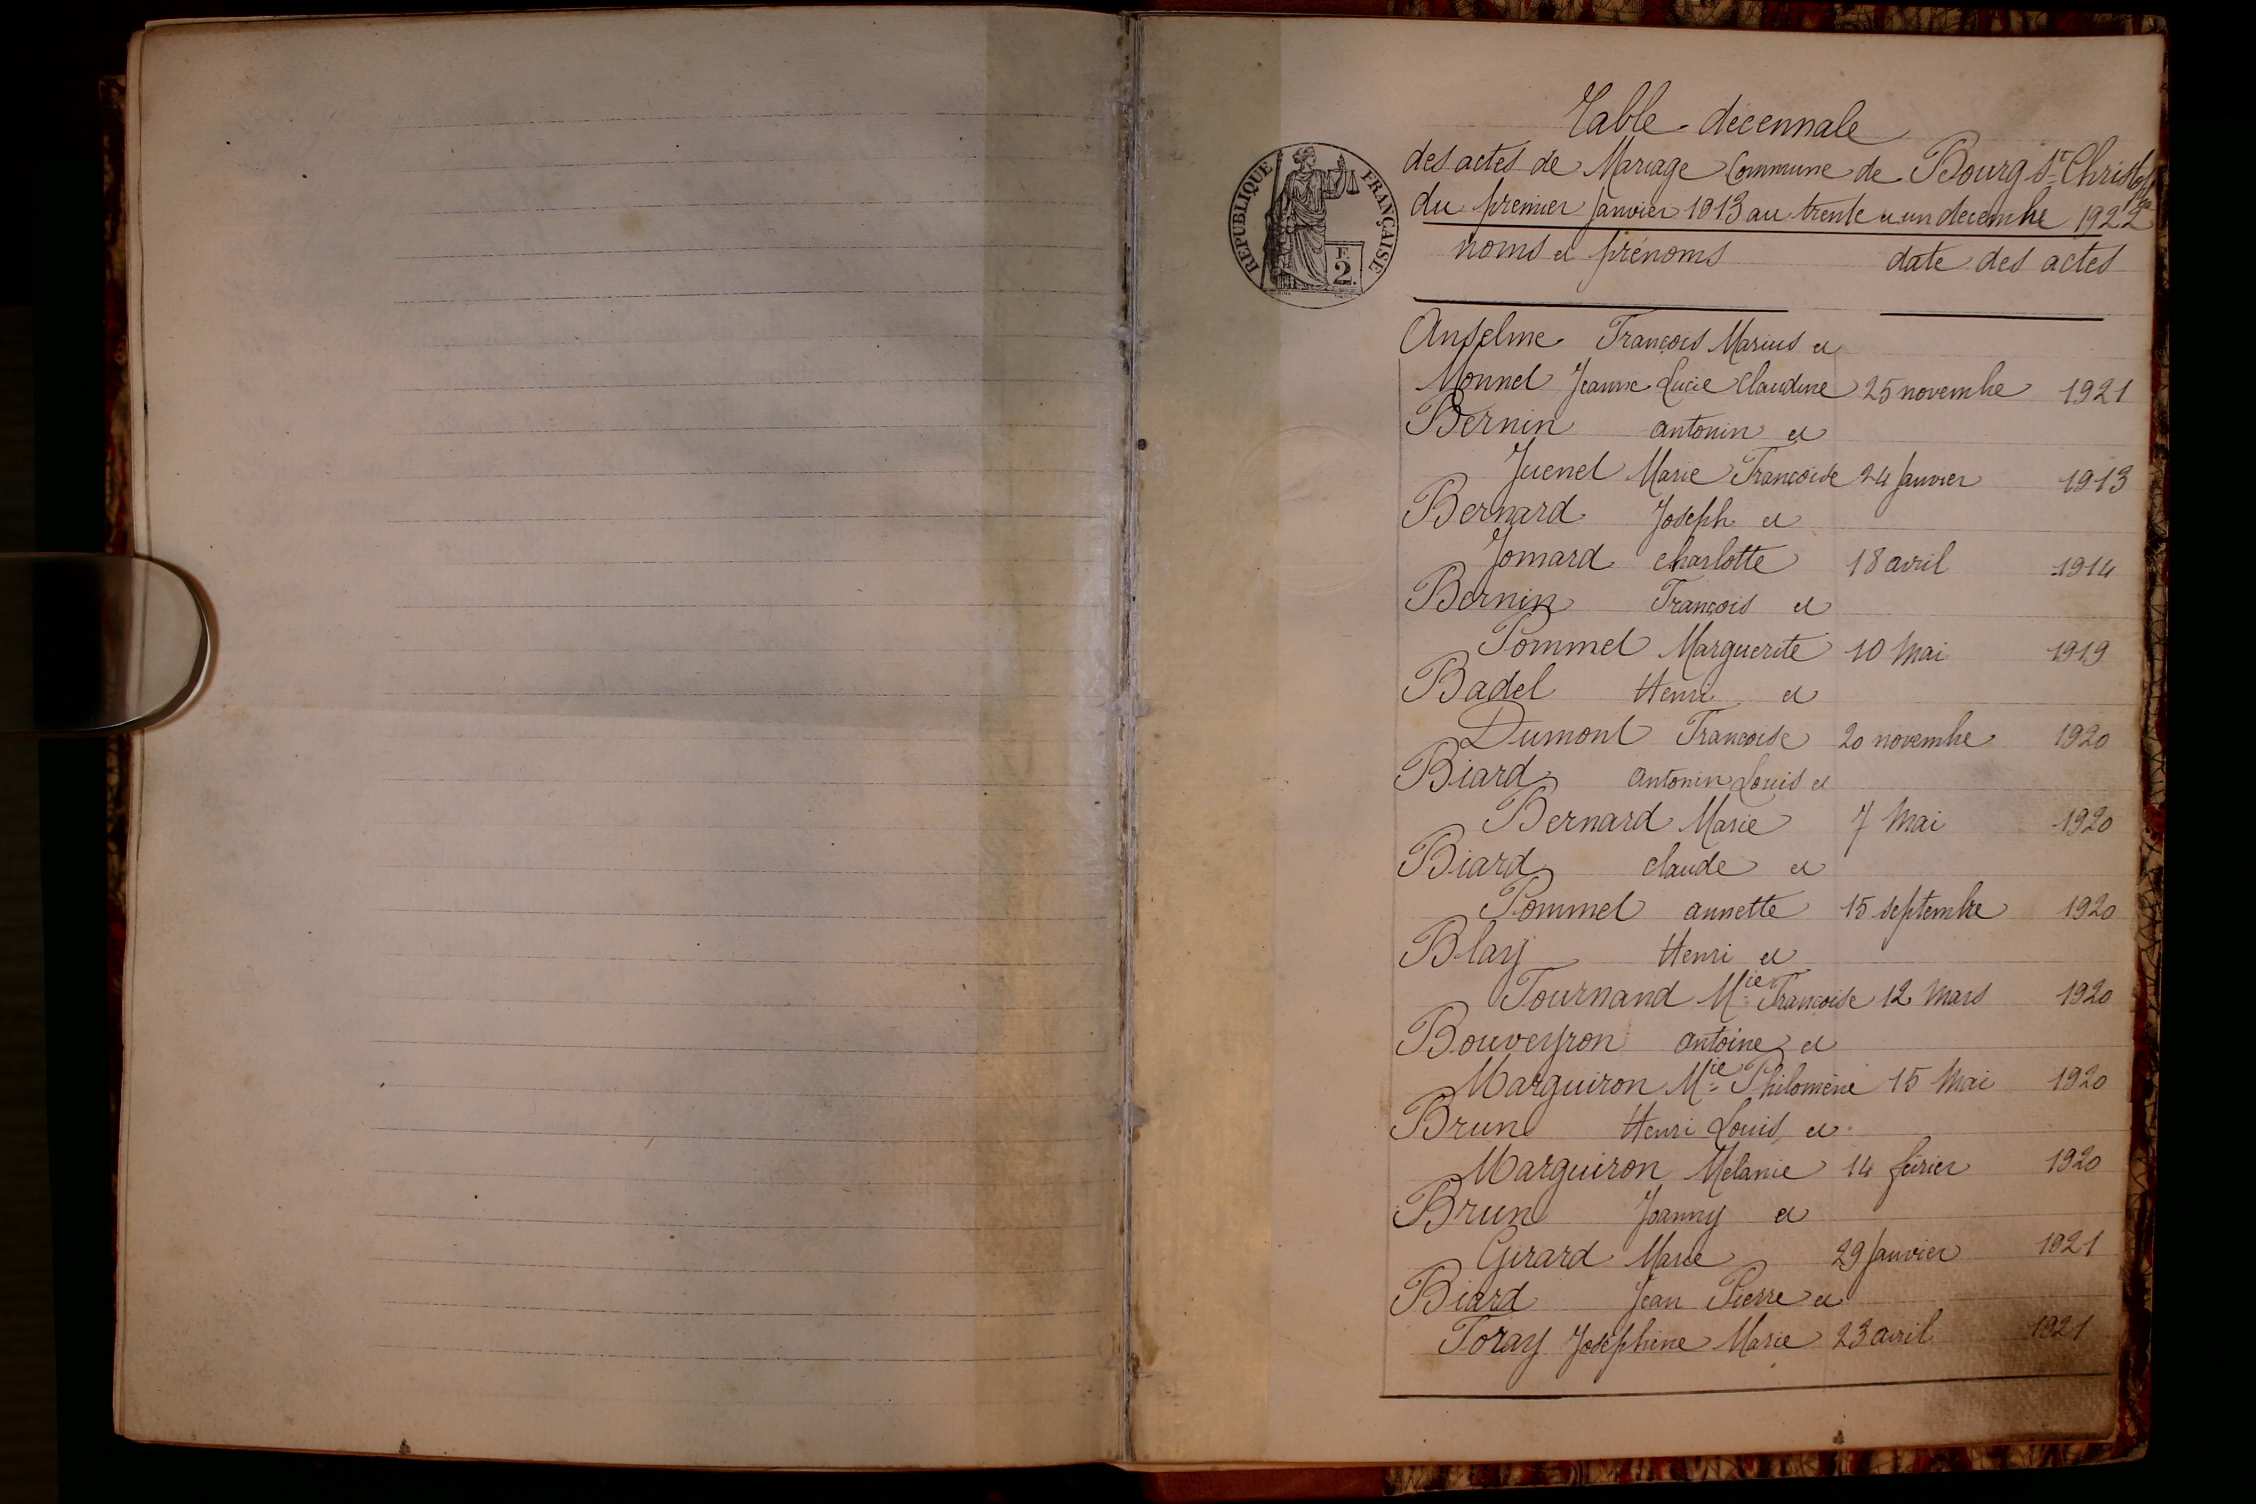 Table décennale
des actes de Mariage Commune de Bourg St Christophe
du premier Janvier 1913 au trente et un decembre 1922
REPUBLIQUE FRANÇAISE
F
2.
noms et prénoms date des actes
Anselme François Marius et
Monnet Jeanne Lucie Claudine 25 novembre 1921
Bernin antonin et
Juenet Marie Françoise 24 Janvier 1913
Bernard Joseph et
Jomard charlotte 18 avril 1914
Bernin François et
Pommet Marguerite 10 Mai 1919
Badel Henri et
Dumont Francoise 20 novembre 1920
Biard antonin Louis et
Bernard Marie 7 Mai 1920
Biard claude et
Pommet annette 15 septembre 1920
Blay Henri et
Tournand Mie Françoise 12 Mars 1920
Bouveyron antoine et
Marguiron Mie Philomène 15 Mai 1920
Brun Henri Louis et
Marguiron Mélanie 14 février 1920
Brun Joanny et
Girard Marie 29 Janvier 1921
Biard Jean Pierre et
Toray Joséphine Marie 23 avril 1921